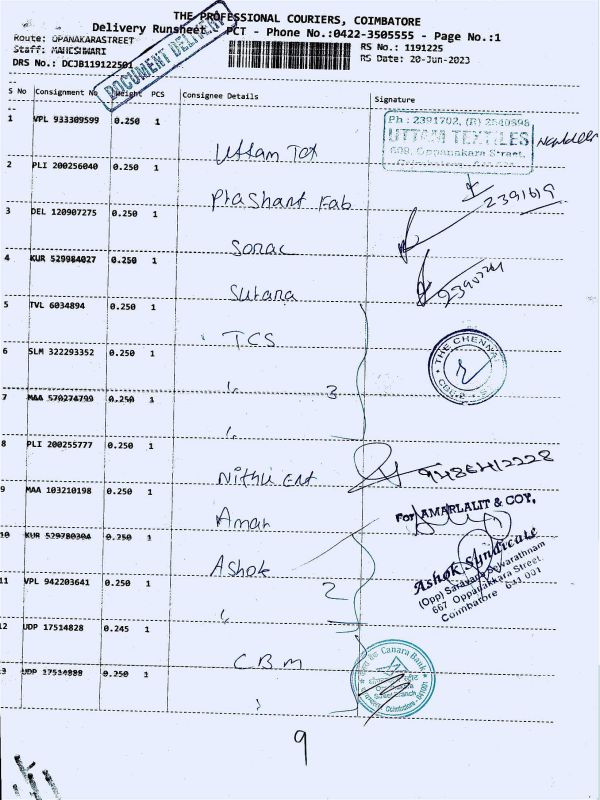 THE PROFESSIONAL COURIERS, COIMBATORE
Delivery Runsheet PCT - Phone No.:0422-3505555 - Page No.:1
Route: OPANAKARASTREET
RS No.: 1191225
Staff: MAHESHWARI
RS Date: 20-Jun-2023
DRS No.: DCJB119122501
DOCUMENT DELIVERY
S No Consignment No Weight PCS Consignee Details Signature
1 VPL 933309599 0.250 1 Uttam Tex
Ph : 2391702, (R) 2540898
UTTAM TEXTILES
609, Oppanakara Street,
2 PLI 200256040 0.250 1 Prashant Fab
2391619
3 DEL 120907275 0.250 1 Sonac
4 KUR 529984027 0.250 1 Sutara
5 TVL 6034894 0.250 1 TCS
THE CHENNAI
6 SLM 322293352 0.250 1 "
3
7 MAA 570274799 0.250 1 "
8 PLI 200255777 0.250 1 Nithu Ent
9486412228
9 MAA 103210198 0.250 1 Aman
For AMARLALIT & COY,
10 KUR 529780304 0.250 1 Ashok
Ashok Syndicate
667 Oppanakkara Street,
Coimbatore 641 001
11 VPL 942203641 0.250 1 "
2
12 UDP 17514828 0.245 1 C.B.M
Canara Bank
Coimbatore - 641001
13 UDP 17514888 0.250 1 "
9